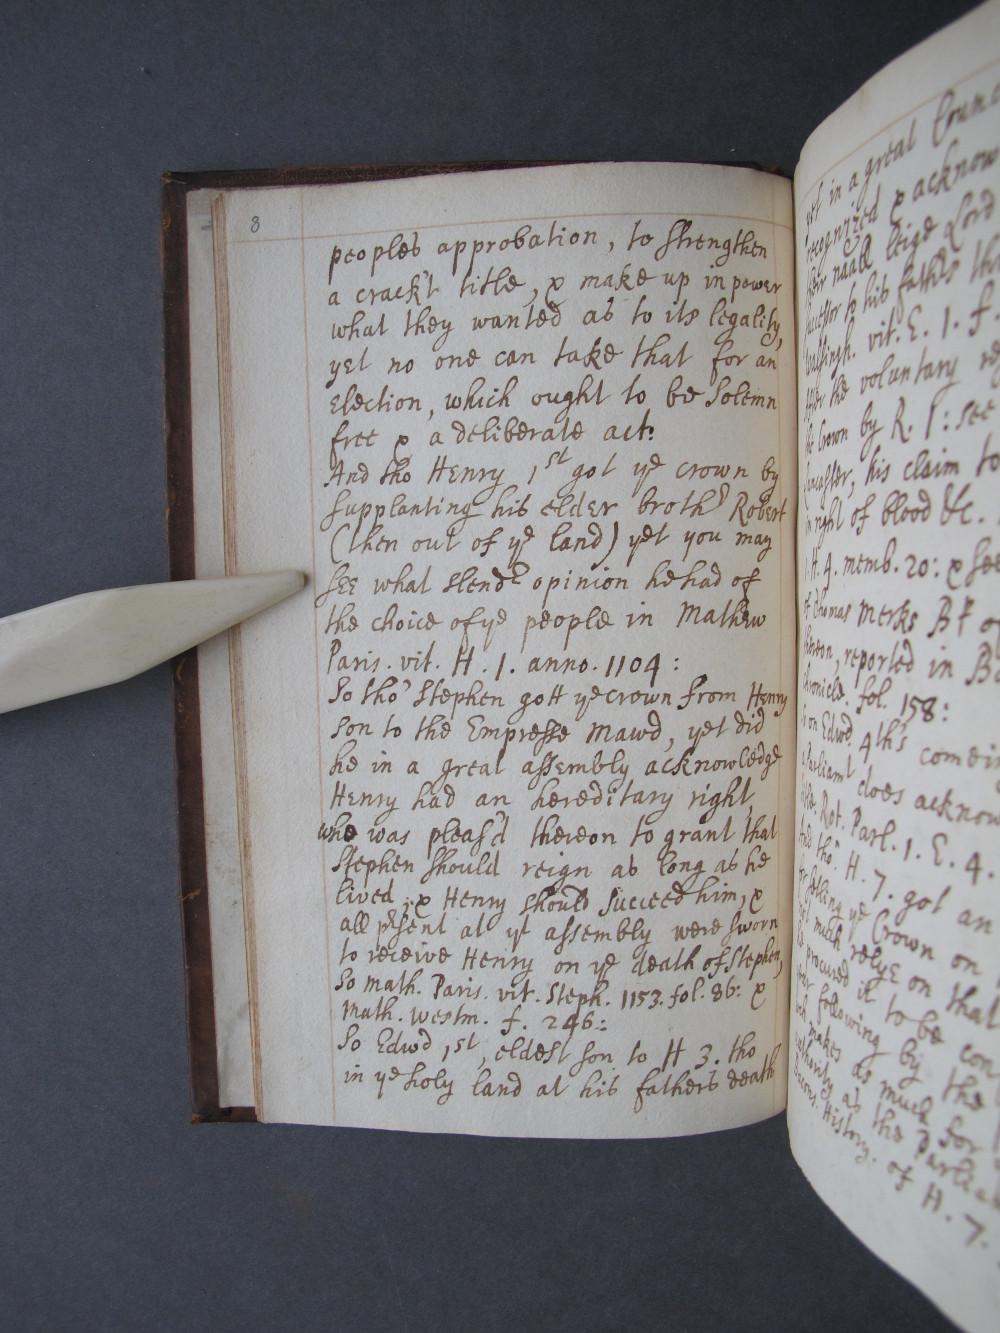 8
peoples approbation, to strengthen
a crack't title, & make up in power
what they wanted as to its legality,
yet no one can take that for an
Election, which ought to be Solemn
free & a deliberate act:
And tho Henry 1st got ye crown by
supplanting his elder brothr Robert
(then out of ye land) yet you may
see what slendr opinion he had of
the choice of ye people in Mathew
Paris. vit. H. 1. anno. 1104:
So tho' Stephen gott ye crown from Henry
son to the Empresse Mawd, yet did
he in a great assembly acknowledge
Henry had an hereditary right,
who was pleas'd thereon to grant that
Stephen should reign as long as he
lived, & Henry should succeed him, &
all psent at yt assembly were sworn
to receive Henry on ye death of Stephen,
So math. Paris. vit. Steph. 1153. fol. 86: &
Math. westm. f. 246:
So Edwd 1st, eldest son to H 3. tho
in ye holy land at his father's death
yet in a great
recognized & acknow
their naall leige Lord
successor to his father's
Walsingh. vit. E. 1. f.
After the voluntary
the Crown by R. 1: see
Lancaster, his claim to
in right of blood &c.
1. H. 4. memb. 20: & see
of Thomas Merks Bp
thereon, reported in
Chronicle. fol. 158:
so on Edwd. 4th's comein
a Parliamt does acknow
title. Rot. Parl. 1. E. 4.
And tho' H. 7. got an
for setling ye Crown on
not much relye on that
he procured it to be con
year following by the
wch makes as much for
authority as the Parliam
Bacons. History. of H. 7.